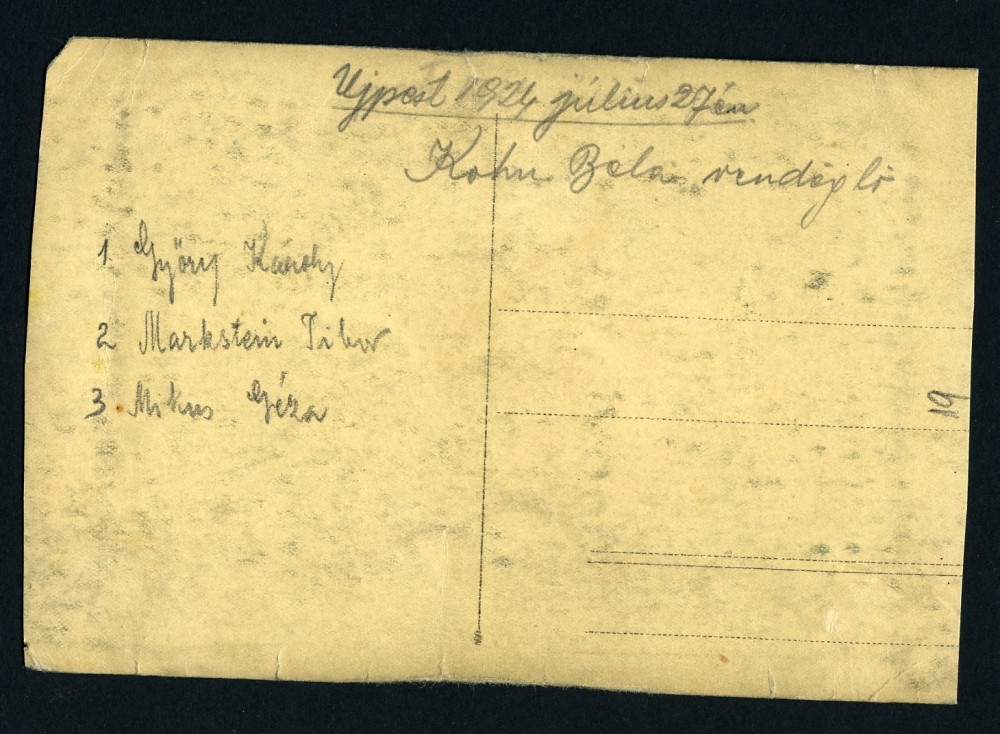 Ujpest 1924 július 27én
Kohn Béla vendéglő
1 Győry Károly
2 Markstein Tibor
3 Mikus Géza
19